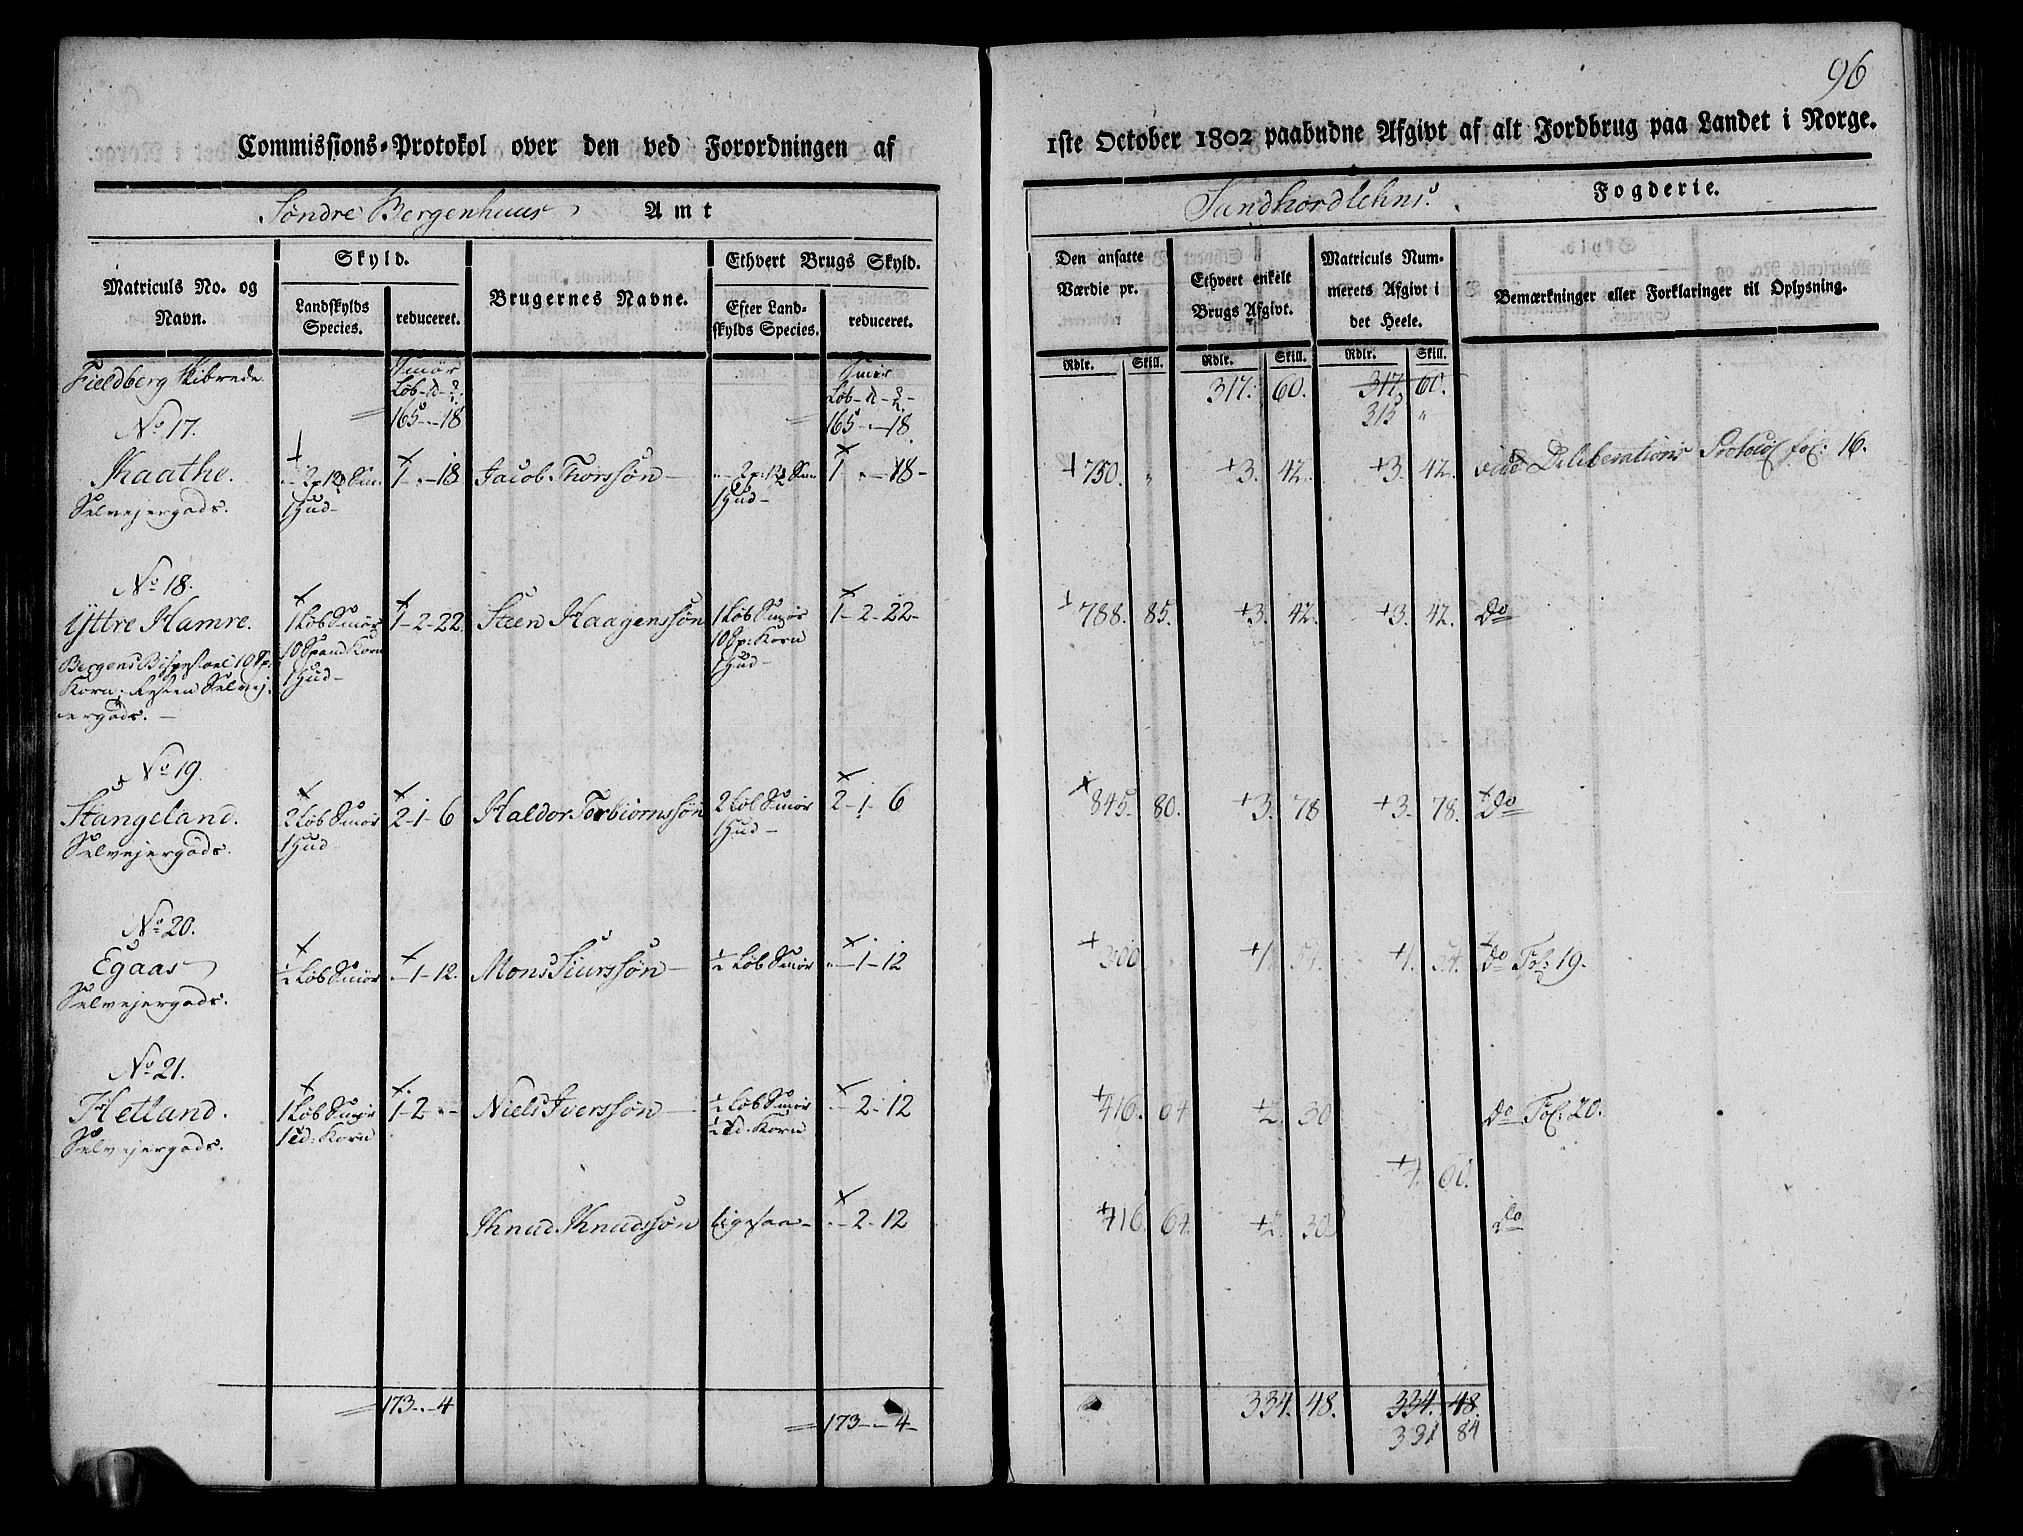 96
Commissions-Protokol over den ved Forordningen af 1ste October 1802 paabudne Afgivt af alt Jordbrug paa Landet i Norge.
Søndre Bergenhuus Amt
Sundhordlehns Fogderie.
Matriculs No. og Navn.
Skyld.
Landskylds Species.
reduceret.
Brugernes Navne.
Ethvert Brugs Skyld.
Efter Landskylds Species.
reduceret.
Den ansatte Værdie pr.
Ethvert enkelt Brugs Afgivt.
Matriculs Nummerets Afgivt i det Heele.
Bemærkninger eller Forklaringer til Oplysning.
Rdlr. Skill. Rdlr. Skill. Rdlr. Skill.
Fieldberg Skibrede
Smør Løb
165 - 18
Smør Løb
165 - 18
317. 60. 317 60.
315 "
No 17.
Kaathe. 1 - 18 Jacob Thorssøn 1 - 18 - 750. " 3. 42. 3. 42. vide Deliberations Protocol fol: 16.
Selvejergods. 1 Hud 1 Hud
No 18.
Yttre Hamre. 1 Løb Smør 1-2-22 Steen Haagenssøn 1 Løb Smør 1-2-22 788. 85. 3. 42. 3. 42. Do
10 Spand Korn 10 Sp: Korn
1 Hud 1 Hud
Bergens Bispestoel 10 Sp:
Korn, Resten Selvej-
ergods.
No 19.
Stangeland. 2 Løb Smør 2-1-6 Haldor Torbiørnssøn 2 Løb Smør 2-1-6 845. 80. 3. 78 3. 78. Do
Selvejergods. 1 Hud 1 Hud
No 20.
Egaas ½ Løb Smør 1-12. Mons Siurssøn ½ Løb Smør 1-12 300 1. 54. 1. 54. Do Fol: 19.
Selvejergods.
No 21.
Hetland. 1 Løb Smør 1-2 Niels Iverssøn ½ Løb Smør 2-12 416. 64 2. 30 Do Fol: 20.
Selvejergods. 1 Td: Korn ½ Td. Korn
4. 60.
Knud Knudssøn Ligesaa 2-12 416 64. 2. 30 Do
173 - 4 173 - 4 334. 48. 334. 48.
331 84